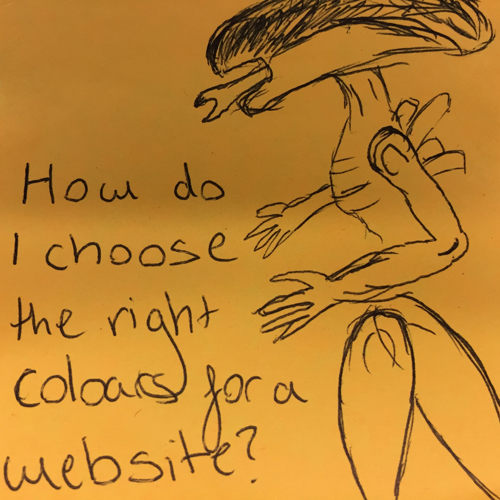 How do
I choose
the right
colours for a
website?